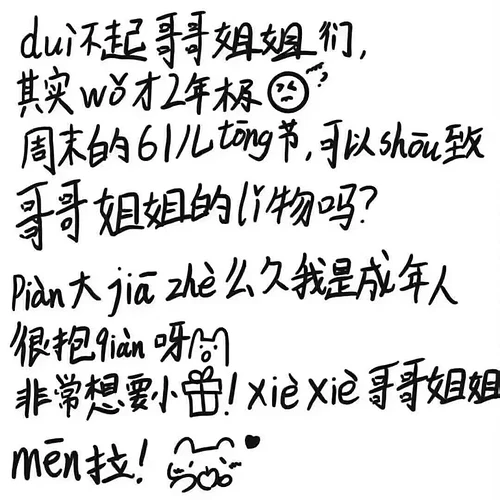 duì不起哥哥姐姐们,
其实wǒ才2年极
周末的61儿tōng节,可以shōu致
哥哥姐姐的lǐ物吗?
Piàn大jiā zhè么久我是成年人
很抱qiàn呀
非常想要小!xiè xiè哥哥姐姐
mēn拉!